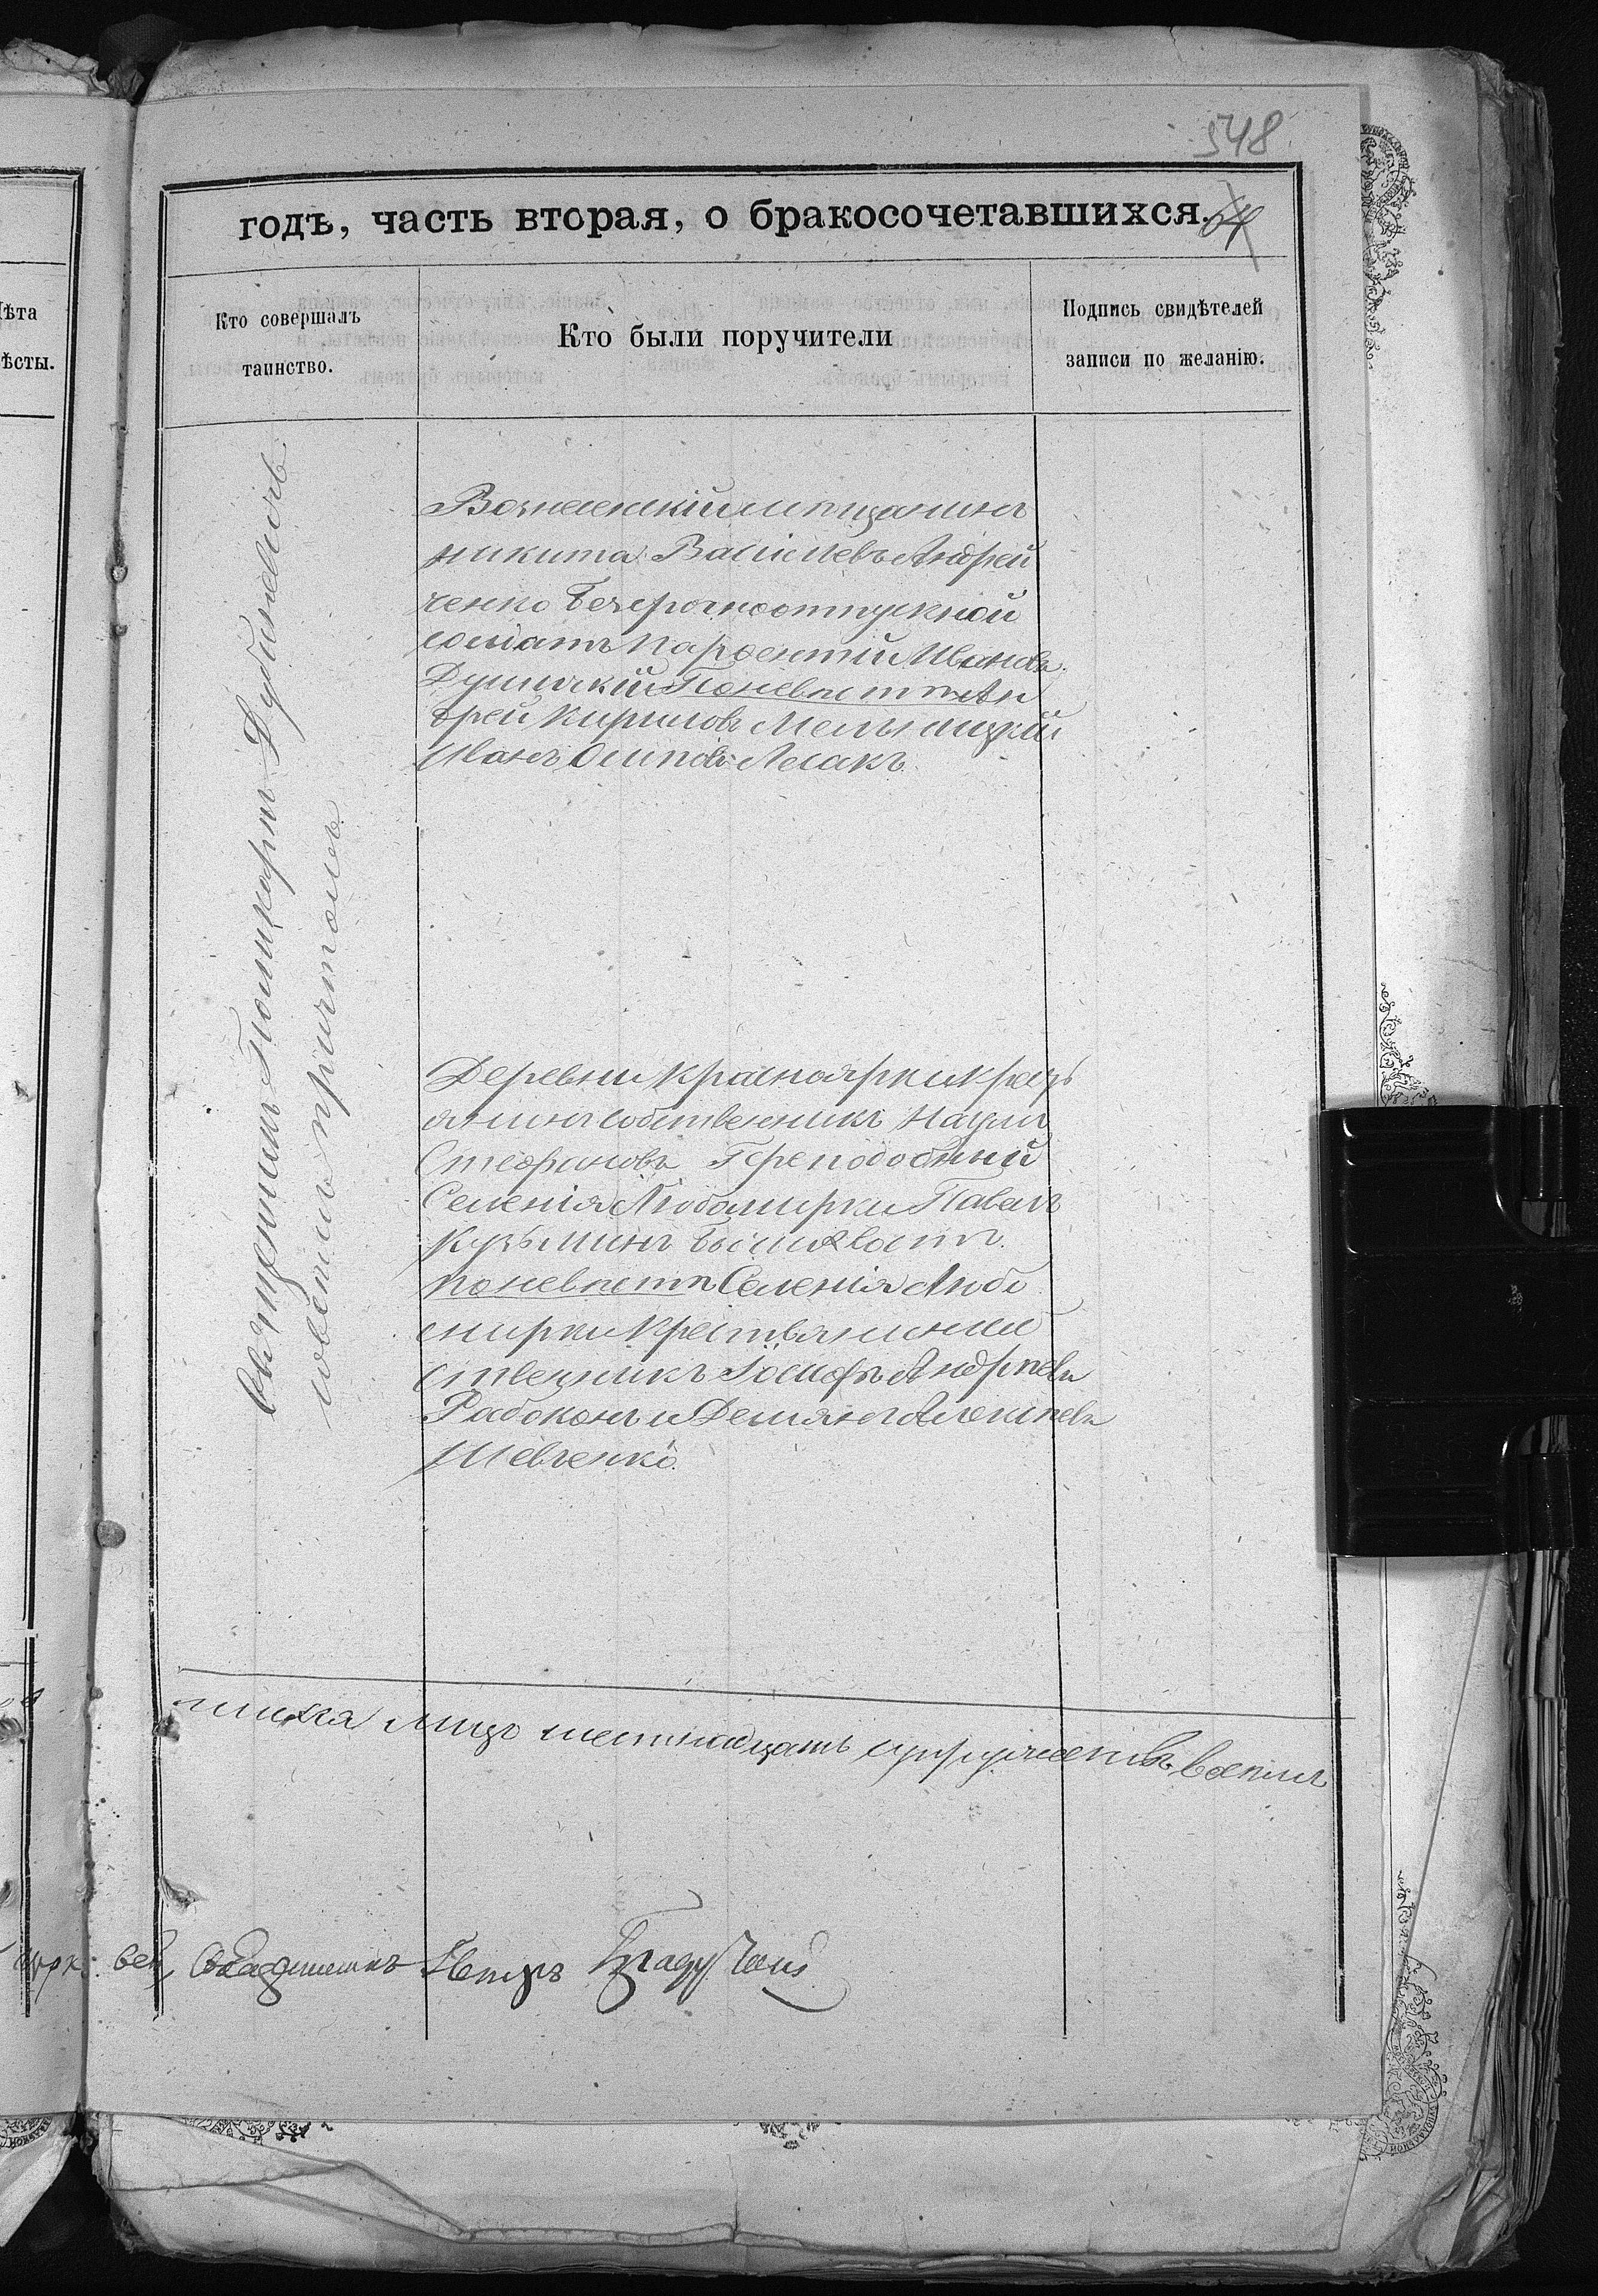 548
годъ, часть вторая, о бракосочетавшихся.
64
Кто совершалъ
таинство.
Кто были поручители
Подпись свидѣтелей
записи по желанію.
ѣта
ѣсты.
Священникъ Поликарпъ Дубиневичъ
причтомъ
Вознесенскій мѣщанинъ
Никита Васильевъ Андрей
ченко Безсрочноотпускной
солдатъ Парфентій Ивановъ
По невѣстѣ Ан
дрей Кириловъ Мельницкій
Иванъ Осиповъ Лесакъ
Деревни Красноярки Крестъ
янинъ собственникъ Наумъ
Стефановъ Преподобный
Селенія Любомирки Павелъ
Кузьминъ
По невѣстѣ Селенія Любо
мирки Крестьянинъ
ственникъ Іосифъ Андреевъ
Рабоконь и Демянъ Алексѣевъ
Шевченко
числа лицъ шестнадцать супружествъ восемь
Псаломщикъ Петръ